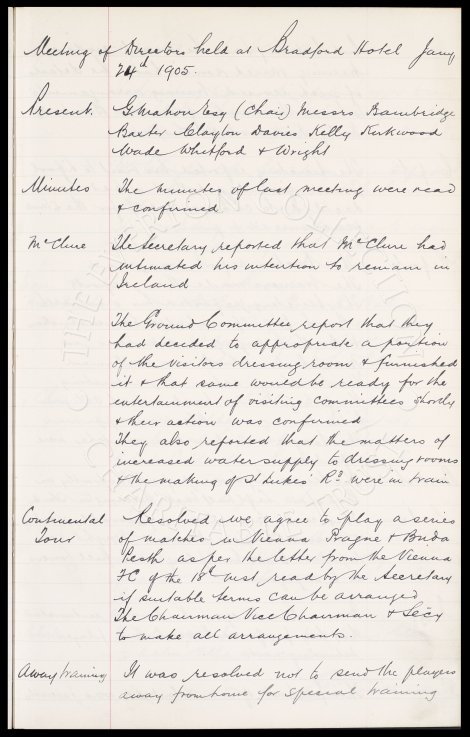 Meeting of Directors held at Bradford Hotel Jany
24d 1905.
Present. G. Mahon Esq (Chair) Messrs Bainbridge
Baxter Clayton Davies Kelly Kirkwood
Wade Whitford & Wright
Minutes The minutes of last meeting were read
& confirmed
McClure The Secretary reported that McClure had
intimated his intention to remain in
Ireland
The Ground Committee report that they
had decided to appropriate a portion
of the visitors dressing room & furnished
it & that same would be ready for the
entertainment of visiting committees shortly
& their action was confirmed
They also reported that the matters of
increased water supply to dressing rooms
& the making of St Lukes' Rd were in train
Continental Resolved we agree to play a series
Tour of matches in Vienna Prague & Buda
Pesth as per the letter from the Vienna
FC of the 18th inst read by the Secretary
if suitable terms can be arranged
The Chairman Vice Chairman & Secy
to make all arrangements.
Away training It was resolved not to send the players
away from home for special training